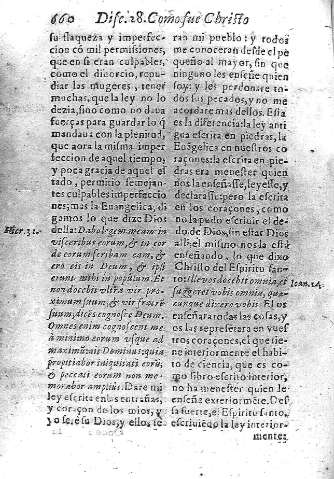 660 Disc. 28. Como fue Christo
su flaqueza y imperfec-
cion cõ mil permisiones,
que en si eran culpables,
como el diuorcio, repu-
diar las mugeres, tener
muchas, que la ley no lo
dezia, sino como no daua
fuerças para guardar lo q̃
mandaua con la plenitud,
que aora la misma imper
feccion de aquel tiempo,
y poca gracia de aquel es
tado, permitio semejan-
tes culpables imperfeccio
nes; mas la Euangelica, di
gamos lo que dize Dios
della: Dabo legem meam in
visceribus eorum, & in cor
de eorum scribam eam, &
ero eis in Deum, & ipsi
erunt mihi in populum. Et
non docebit vltra vir pro-
ximum suum, & vir fratrẽ
suum, dicẽs cognosce Deum.
Omnes enim cognoscent me
à minimo eorum vsque ad
maximum ait Dominus: quia
propitiabor iniquitati eorũ;
& peccati eorum non me-
morabor amplius. Dare mi
ley escrita en las entrañas,
y coraçon de los mios, y
yo serè su Dios, y ellos se
Hier. 31.
ran mi pueblo: y todos
me conoceran desde el pe
queño al mayor, sin que
ninguno les enseñe quien
soy: y les perdonarè to-
dos sus pecados, y no me
acordarè mas dellos. Essa
es la diferencia: la ley anti
gua escrita en piedras, la
Euãgelica en nuestros co
raçones: la escrita en pie-
dras era menester quien
nos la enseñasse, leyesse, y
declarasse: pero la escrita
en los coraçones, como
no la pudo escriuir el de-
do de Dios, sin estar Dios
alli, el mismo nos la està
enseñando, lo que dixo
Christo del Espiritu san-
to: Ille vos docebit omnia, et
suggeret vobis omnia, quæ-
cunque dixero vobis. El os
enseñarà todas las cosas, y
os las representarà en vues
tros coraçones, el que tie-
ne interiormente el habi-
to de ciencia, que es co-
mo libro escrito interior,
no ha menester quien le
enseñe exteriormẽte. Des
ta suerte, el Espiritu santo,
escriuiẽdo la ley interior-
mente,
Ioan. 14.